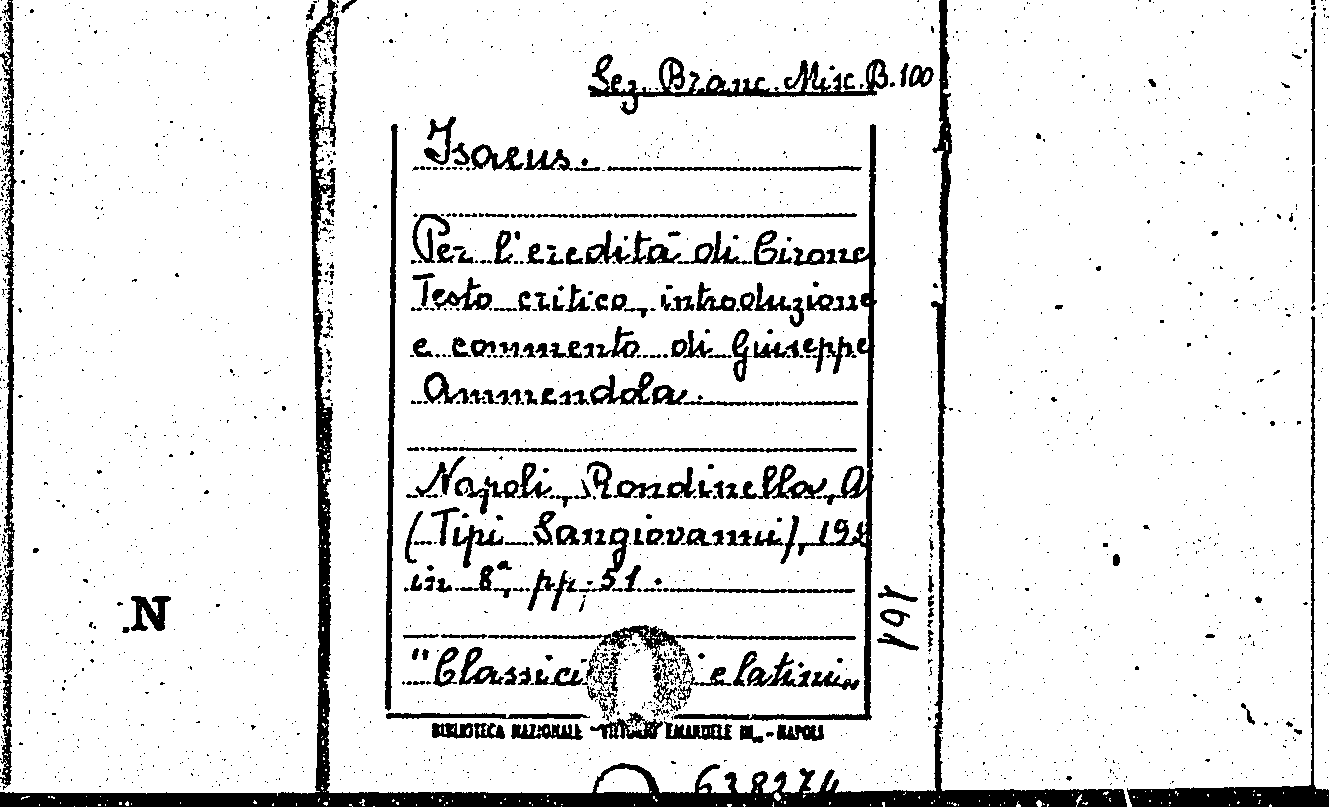 Sez. Branc. Misc. B. 100
Isaeus.
Per l'eredità di Cirone
Testo critico, introduzione
e commento di Giuseppe
Ammendola.
Napoli, Rondinella, A
(Tipi Sangiovanni), 192
in 8°, pp. 51.
"Classici e latini"
BIBLIOTECA NAZIONALE - VITTORIO EMANUELE III - NAPOLI
N
638274